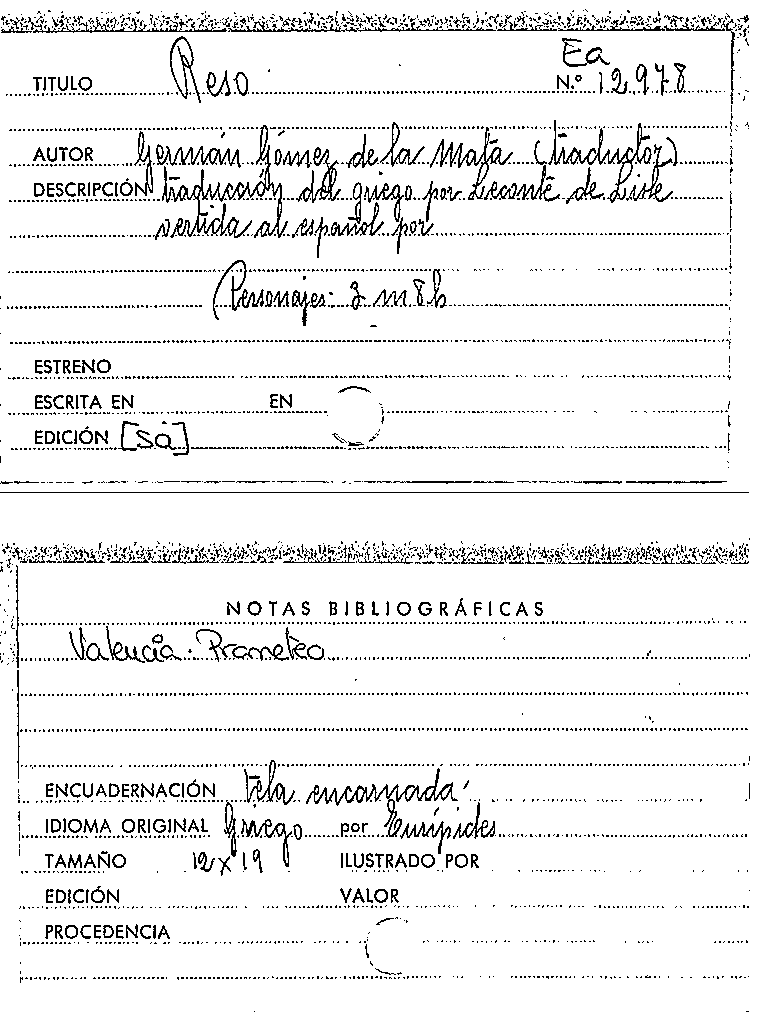 Ea
TITULO Reso N.º 12.978
AUTOR Germán Gómez de la Mata (traductor)
DESCRIPCIÓN traducción del griego por Leconte de Lisle
vertida al español por
Personajes: 3 m 8 h
ESTRENO
ESCRITA EN EN
EDICIÓN [Sa]
NOTAS BIBLIOGRÁFICAS
Valencia. Prometeo
ENCUADERNACIÓN tela encarnada
IDIOMA ORIGINAL Griego por Eurípides
TAMAÑO 12 x 19 ILUSTRADO POR
EDICIÓN VALOR
PROCEDENCIA